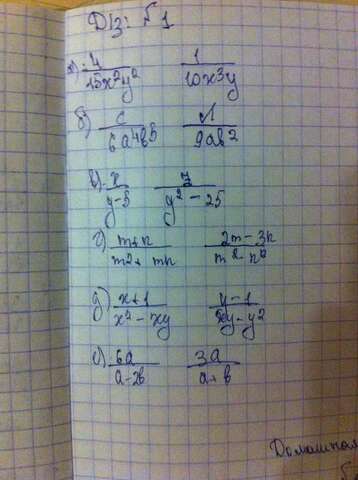 Д/З: №1
а) 4/15x²y² 1/10x³y
б) c/6a⁴b⁵ 1/9ab²
в) x/y-5 7/y²-25
г) m+n/m²+mn 2m-3n/m²-n²
д) x+1/x²-xy y-1/xy-y²
е) 6a/a-2b 3a/a+b
Домашная